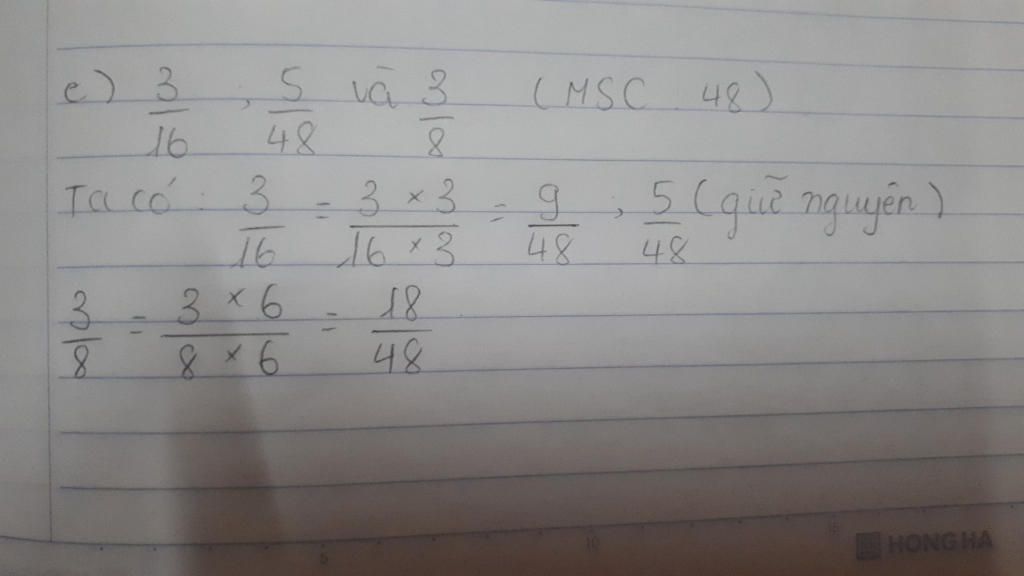 e) 3/16 ; 5/48 và 3/8 (MSC : 48)
Ta có : 3/16 = 3 × 3/16 × 3 = 9/48 ; 5/48 (giữ nguyên)
3/8 = 3 × 6/8 × 6 = 18/48
6 10 15
HONG HA